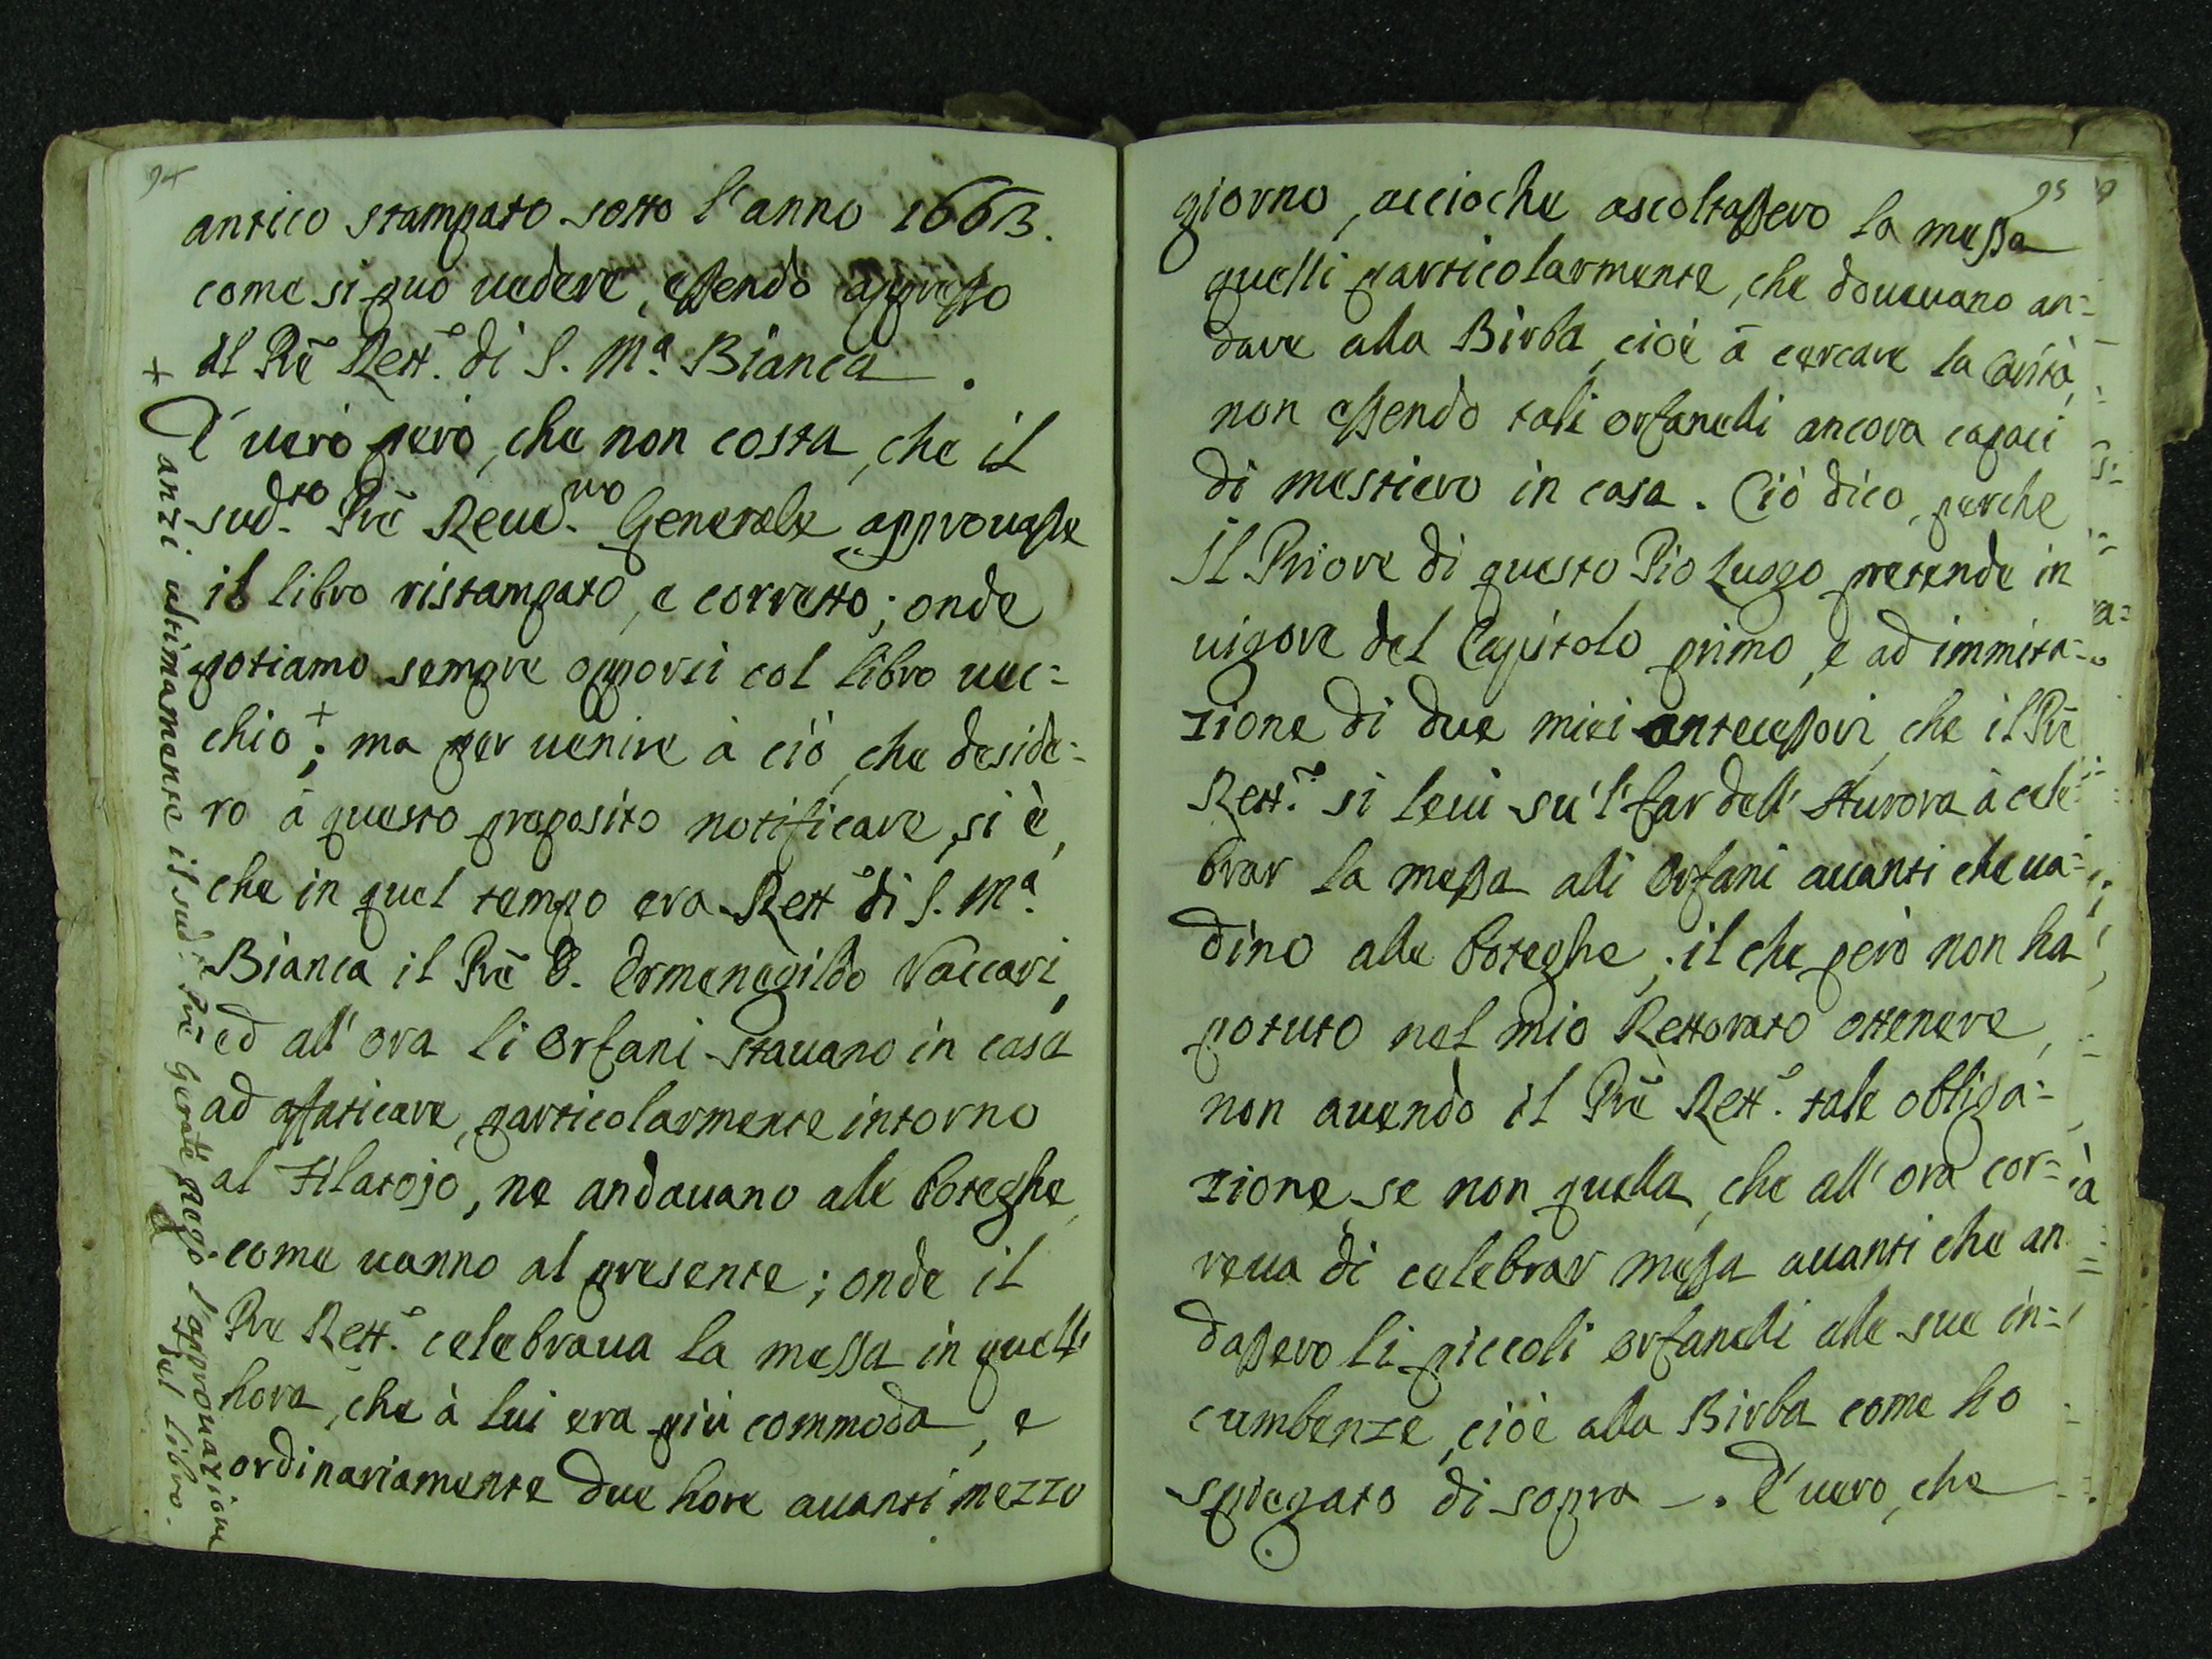 94
antico stampato sotto l'anno 1663.
come si può uedere, essendo appresso
il Prē Rett.e di S. M.a Bianca .
È uero però, che non costa, che il
sud.to Prē Reue.mo Generale approuasse
il libro ristampato, e corretto; onde
potiamo sempre opporci col libro uec=
chio +; ma per uenire à ciò, che deside=
ro à questo proposito notificare, si è,
che in quel tempo era Rett.e di S. M.a
Bianca il Prē D. Ermenegildo Vaccari,
ed all'ora li Orfani stauano in casa
ad affaticare, particolarmente intorno
al Filatojo, ne andauano alle boteghe,
come uanno al presente; onde il
Prē Rett.e celebraua la messa in quell'
hora, che à lui era più commoda, e
ordinariamente due hore auanti mezzo
+ anzi ultimamente il sud.o Prē Gen̄ale negò l'approuazione
del libro.
95
giorno, accioche ascoltassero la messa
quelli particolarmente, che doueuano an=
dare alla Birba, cioè à cercare la Carità,
non essendo tali orfanelli ancora capaci
di mestiero in casa. Ciò dico, perche
Il Priore di questo Pio Luogo pretende in
uigore del Capitolo primo, e ad immita=
zione di due miei antecessori, che il Prē
Rett.e si leui su'l far dell'Aurora à cele=
brar la messa alli Orfani auanti che ua=
dino alle boteghe; il che però non ha
potuto nel mio Rettorato ottenere,
non auendo il Prē Rett.e tale obliga=
zione, se non quella, che all'ora cor=
reua di celebrar messa auanti che an
dassero li piccoli orfanelli alle sue in=
cumbenze, cioè alla Birba come ho
spiegato di sopra -. È uero, che